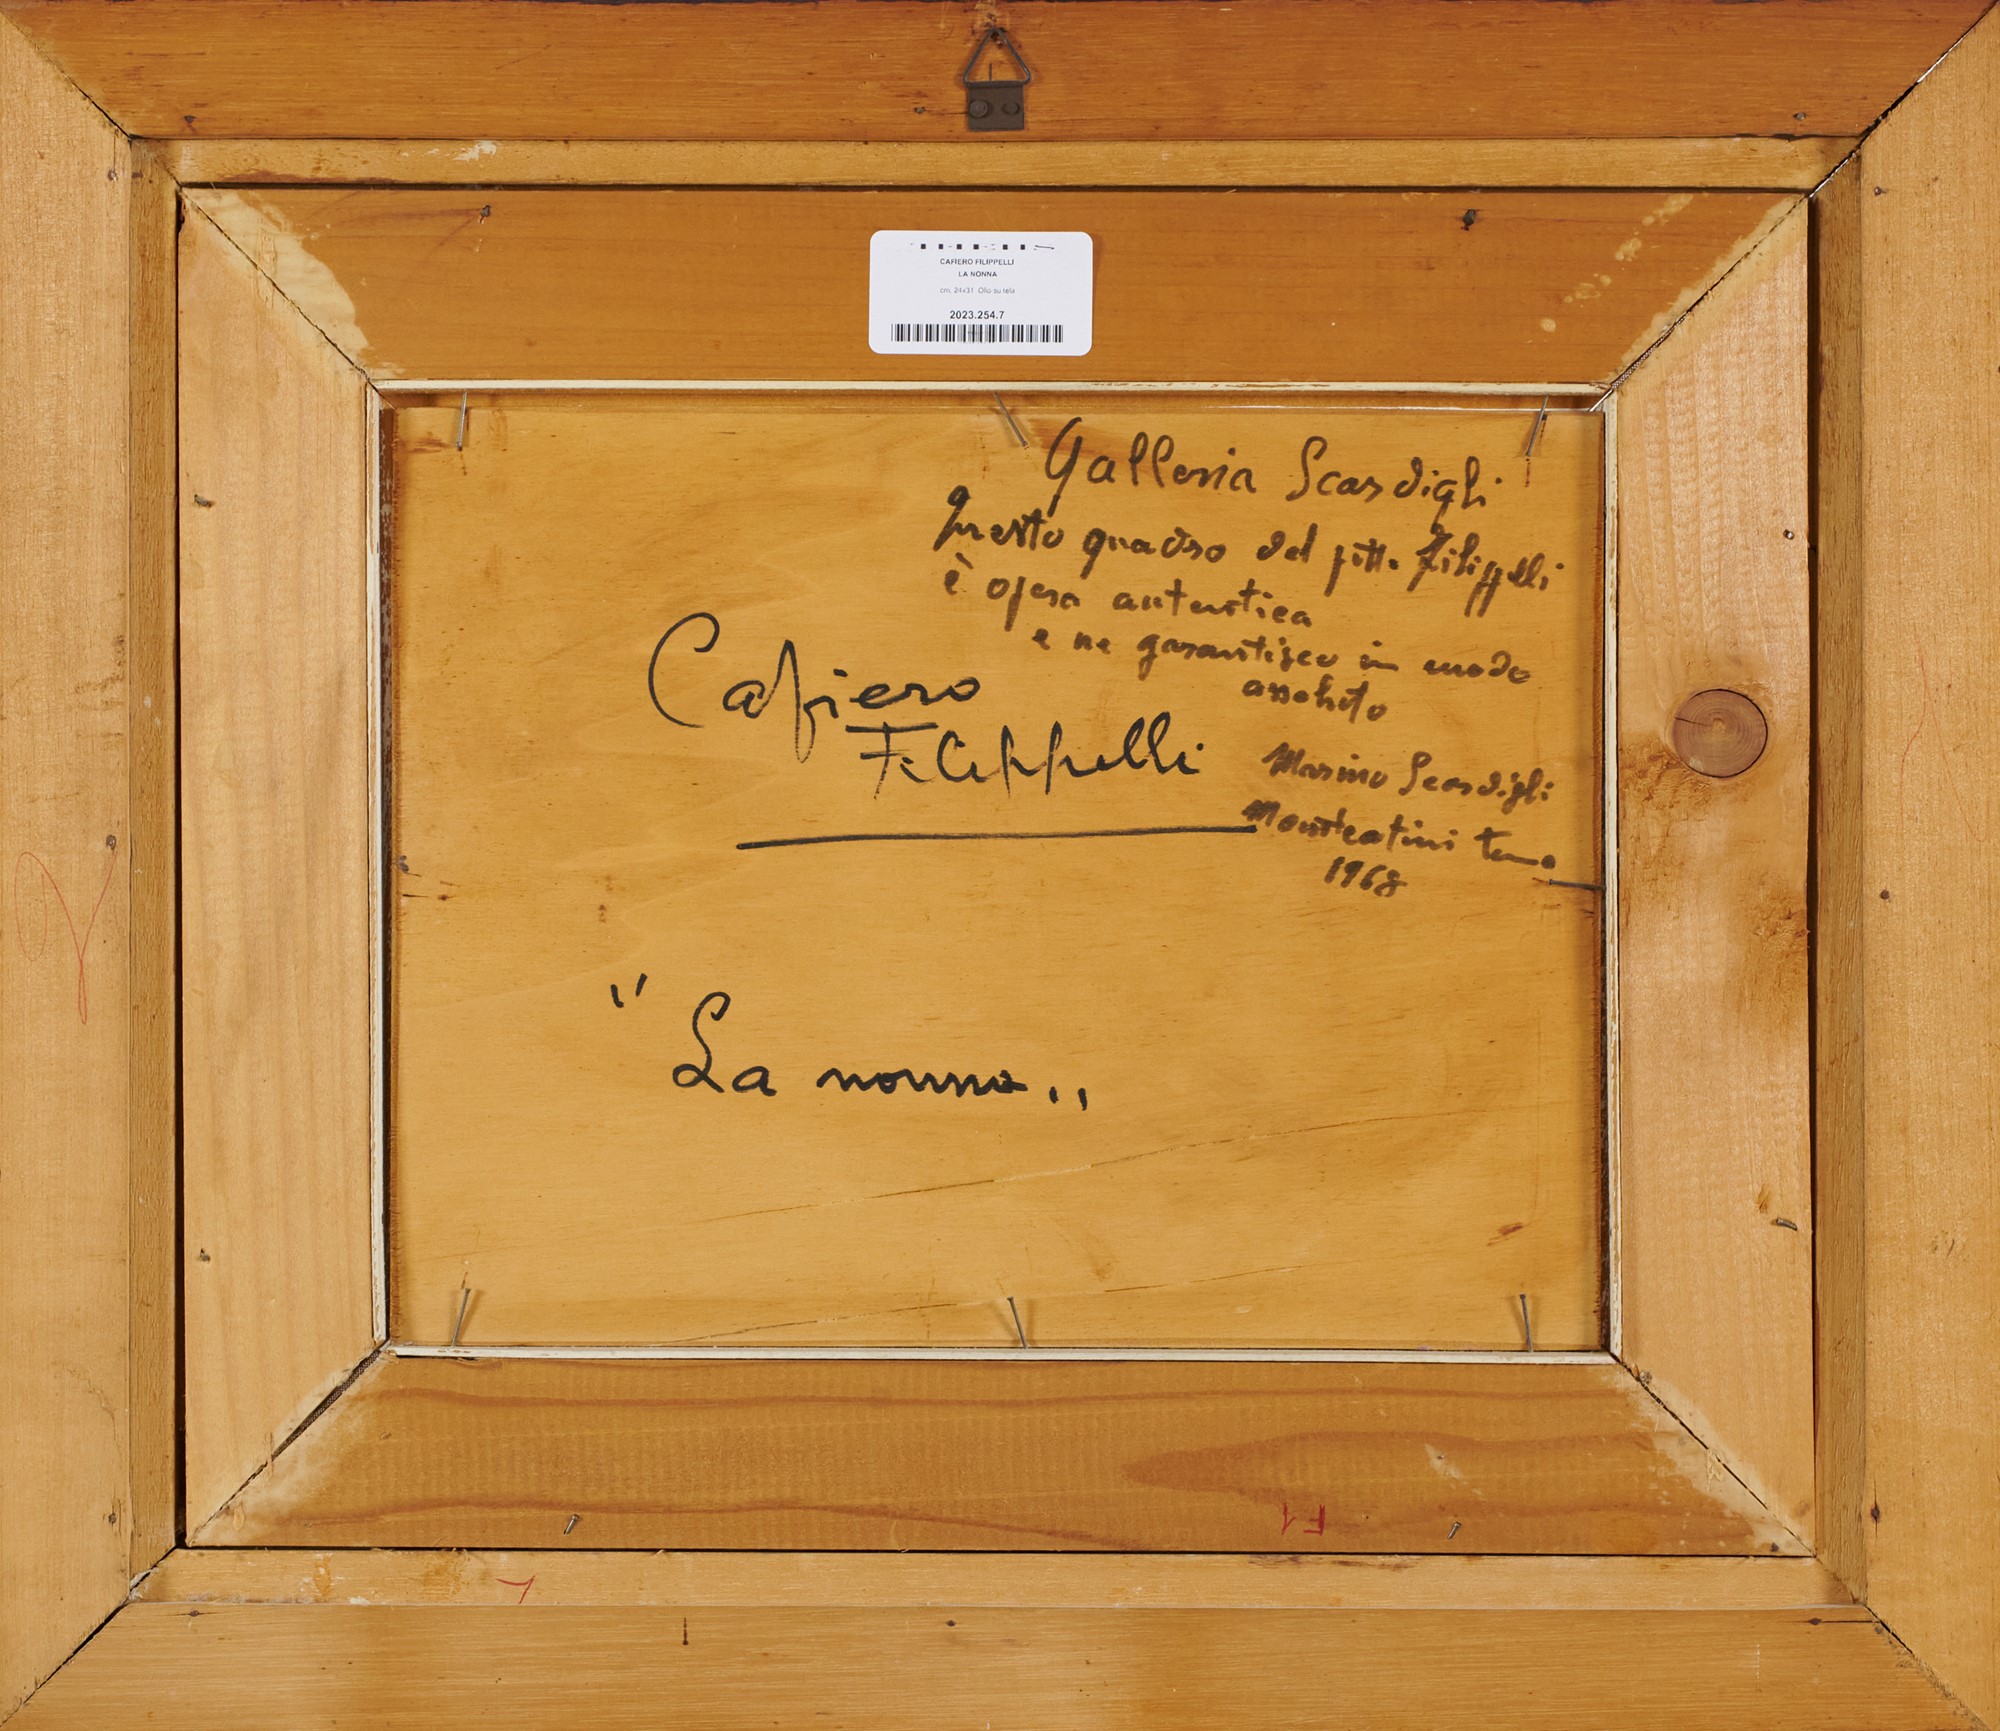 CAFIERO FILIPPELLI
LA NONNA
cm. 24x31 Olio su tela
2023.254.7
Galleria Scardigli
Questo quadro del pitt. Filippelli
è opera autentica
e ne garantisco in modo
assoluto
Marino Scardigli
Montecatini
1968
Cafiero
Filippelli
" La nonna ,,
F1